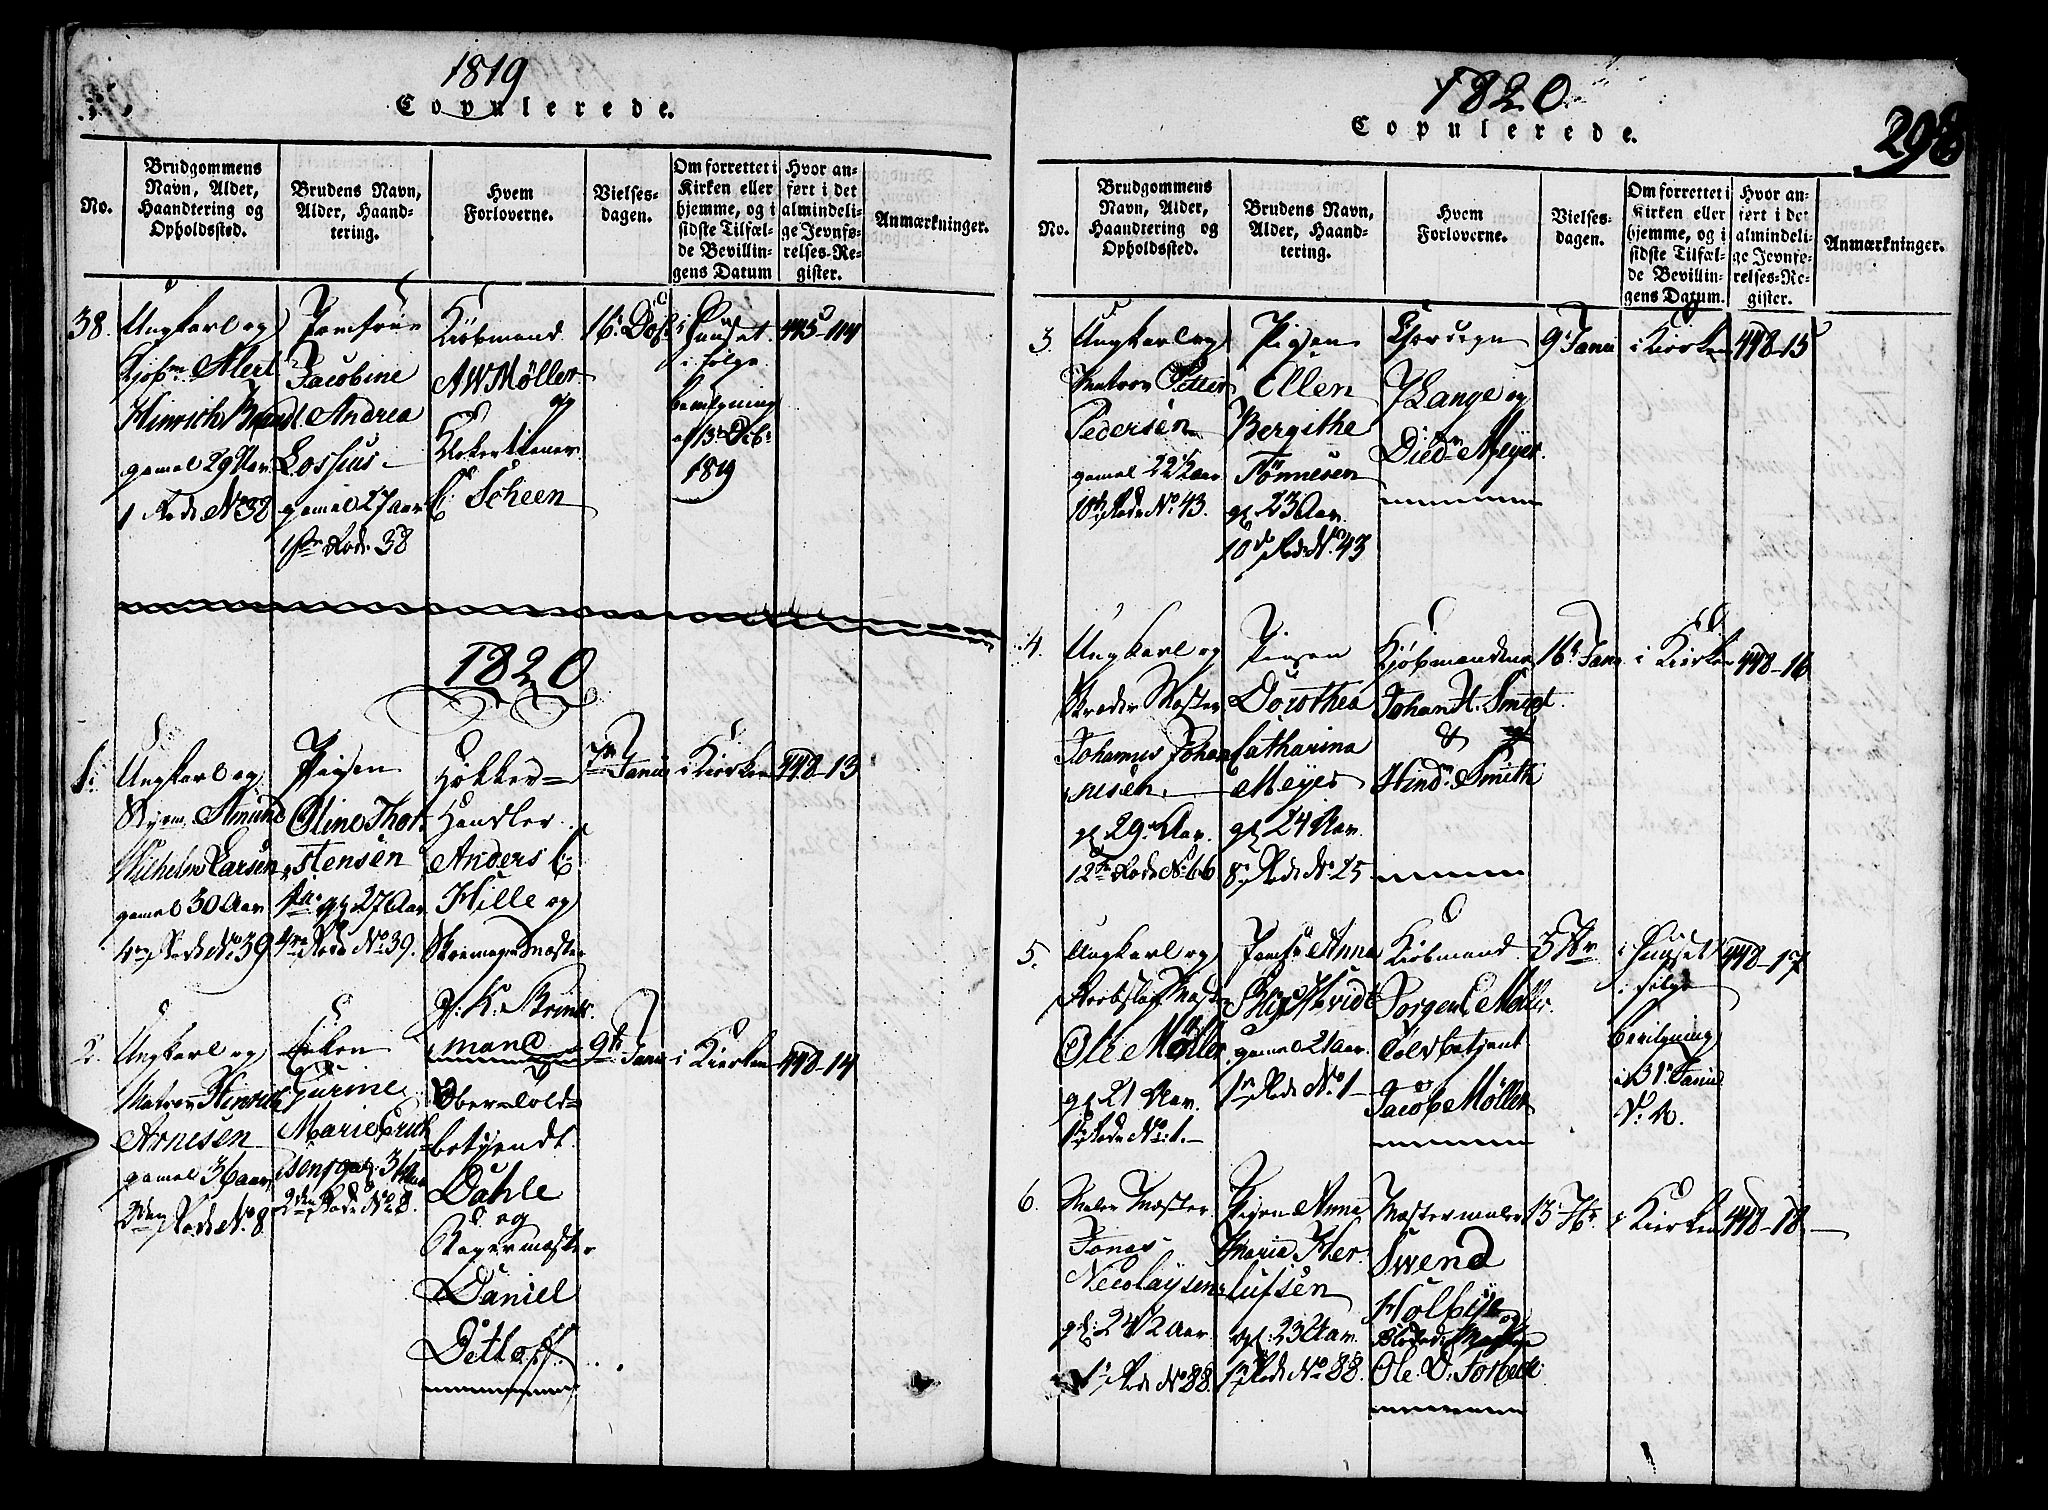 1819
Copulerede.
No.
Brudgommens
Navn, Alder,
Haandtering og
Opholdssted.
Brudens Navn,
Alder, Haand-
tering.
Hvem
Forloverne.
Vielses-
dagen.
Om forrettet i
Kirken eller
hjemme, og i
sidste Tilfæl-
de Bevillin-
gens Datum
Hvor an-
ført i det
almindeli-
ge Jevnfø-
relses-Re-
gister.
Anmærkninger.
38.
Ungkarl og
Kjøbm. Alert
Hinrich
gamel 29 Aar
1 Rode No 38
Jomfrue
Jacobine
Andrea
Lossius
gamel 27 Aar
1ste Rode 38
Kiøbmand
AW Møller
og
C: Scheen
16. Dec
i Huuset
i følge
bevilgning
af 13 Dcb:
1819
445-114
1820
1.
Ungkarl og
Amund
Wilhelm Larsen
gamel 30 Aar
4re Rode No 39
Pigen
Oline Thor
stensen
gl 27 Aar
4re Rode No 39.
Høkker=
Handler
Anders C:
Hille og
Skomagermester
mand
7de Janu
i Kirken
448-13
2.
Ungkarl og
Matros Hinrich
Arnesen
gamel 36 aar
2den Rode No 8
Enken
Gurine
Marie Erich
sens
2den Rode No 8.
Ober=Told=
betjendt
Dahle
og
Bagermester
Daniel
Ditloff
9de Janu
i Kirken
448-14
1820
Copulerede.
298
No.
Brudgommens
Navn, Alder,
Haandtering og
Opholdssted.
Brudens Navn,
Alder, Haand-
tering.
Hvem
Forloverne.
Vielses-
dagen.
Om forrettet i
Kirken eller
hjemme, og i
sidste Tilfæl-
de Bevillin-
gens Datum.
Hvor an-
ført i det
almindeli-
ge Jevnfø-
relses-Re-
gister.
Anmærkninger.
3.
Ungkarl og
Matros Petter
Pedersen
gamel 22 1/2 aar
10de Rode No 43.
Pigen
Ellen
Bergithe
Tønnesen
gl 23 Aar
10de Rode No. 43
J Lange og
Died. Meyer.
9 Janu
i Kirken
448-15
4.
Ungkarl og
Skreder Mester
Johannes Johan
nesen
gl 29 Aar.
12te Rode No 66
Pigen
Dorothea
Catharina
Meyer
gl 24 Aar.
8 Rode No 25
Kjøbmændene
Johan H. Smidt
&
Hind. Smith
16 Janu
i Kirken
448-16
5.
Ungkarl og
Ole Møller
gl 21 Aar.
1 Rode No: 1.
Jomfr Anna
gamel 21 aar.
1 Rode No. 1
Kiøbmand
Jørgen C Møller
Toldbetjent
Jacob Møller
i Huuset
i følge
bevilgning
31 Janu
448-17
6.
Maler Mester
Jonas
Nicolaysen
gl: 24 1/2 Aar.
1 Rode No 88.
Pigen Anna
Maria Her
lufsen
gl: 23 Aar.
Rode No 88.
Mestermaler
Swend
Holbye
Ole. D. Torbech
i Kirken
448-18